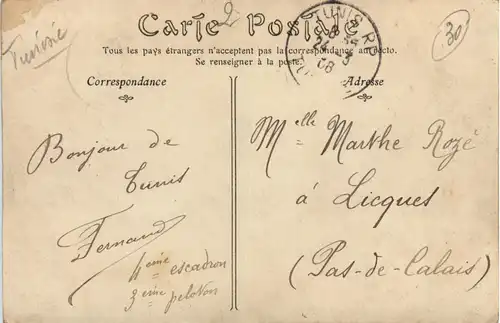 Tunisie
2
30
Carte Postale
Tous les pays étrangers n'acceptent pas la correspondance au recto.
Se renseigner à la poste
Correspondance
Adresse
TUNIS R.P.
08
Bonjour de
Tunis
Fernand
4ème escadron
3eme peloton
Melle Marthe Rozé
à Licques
(Pas-de-Calais)